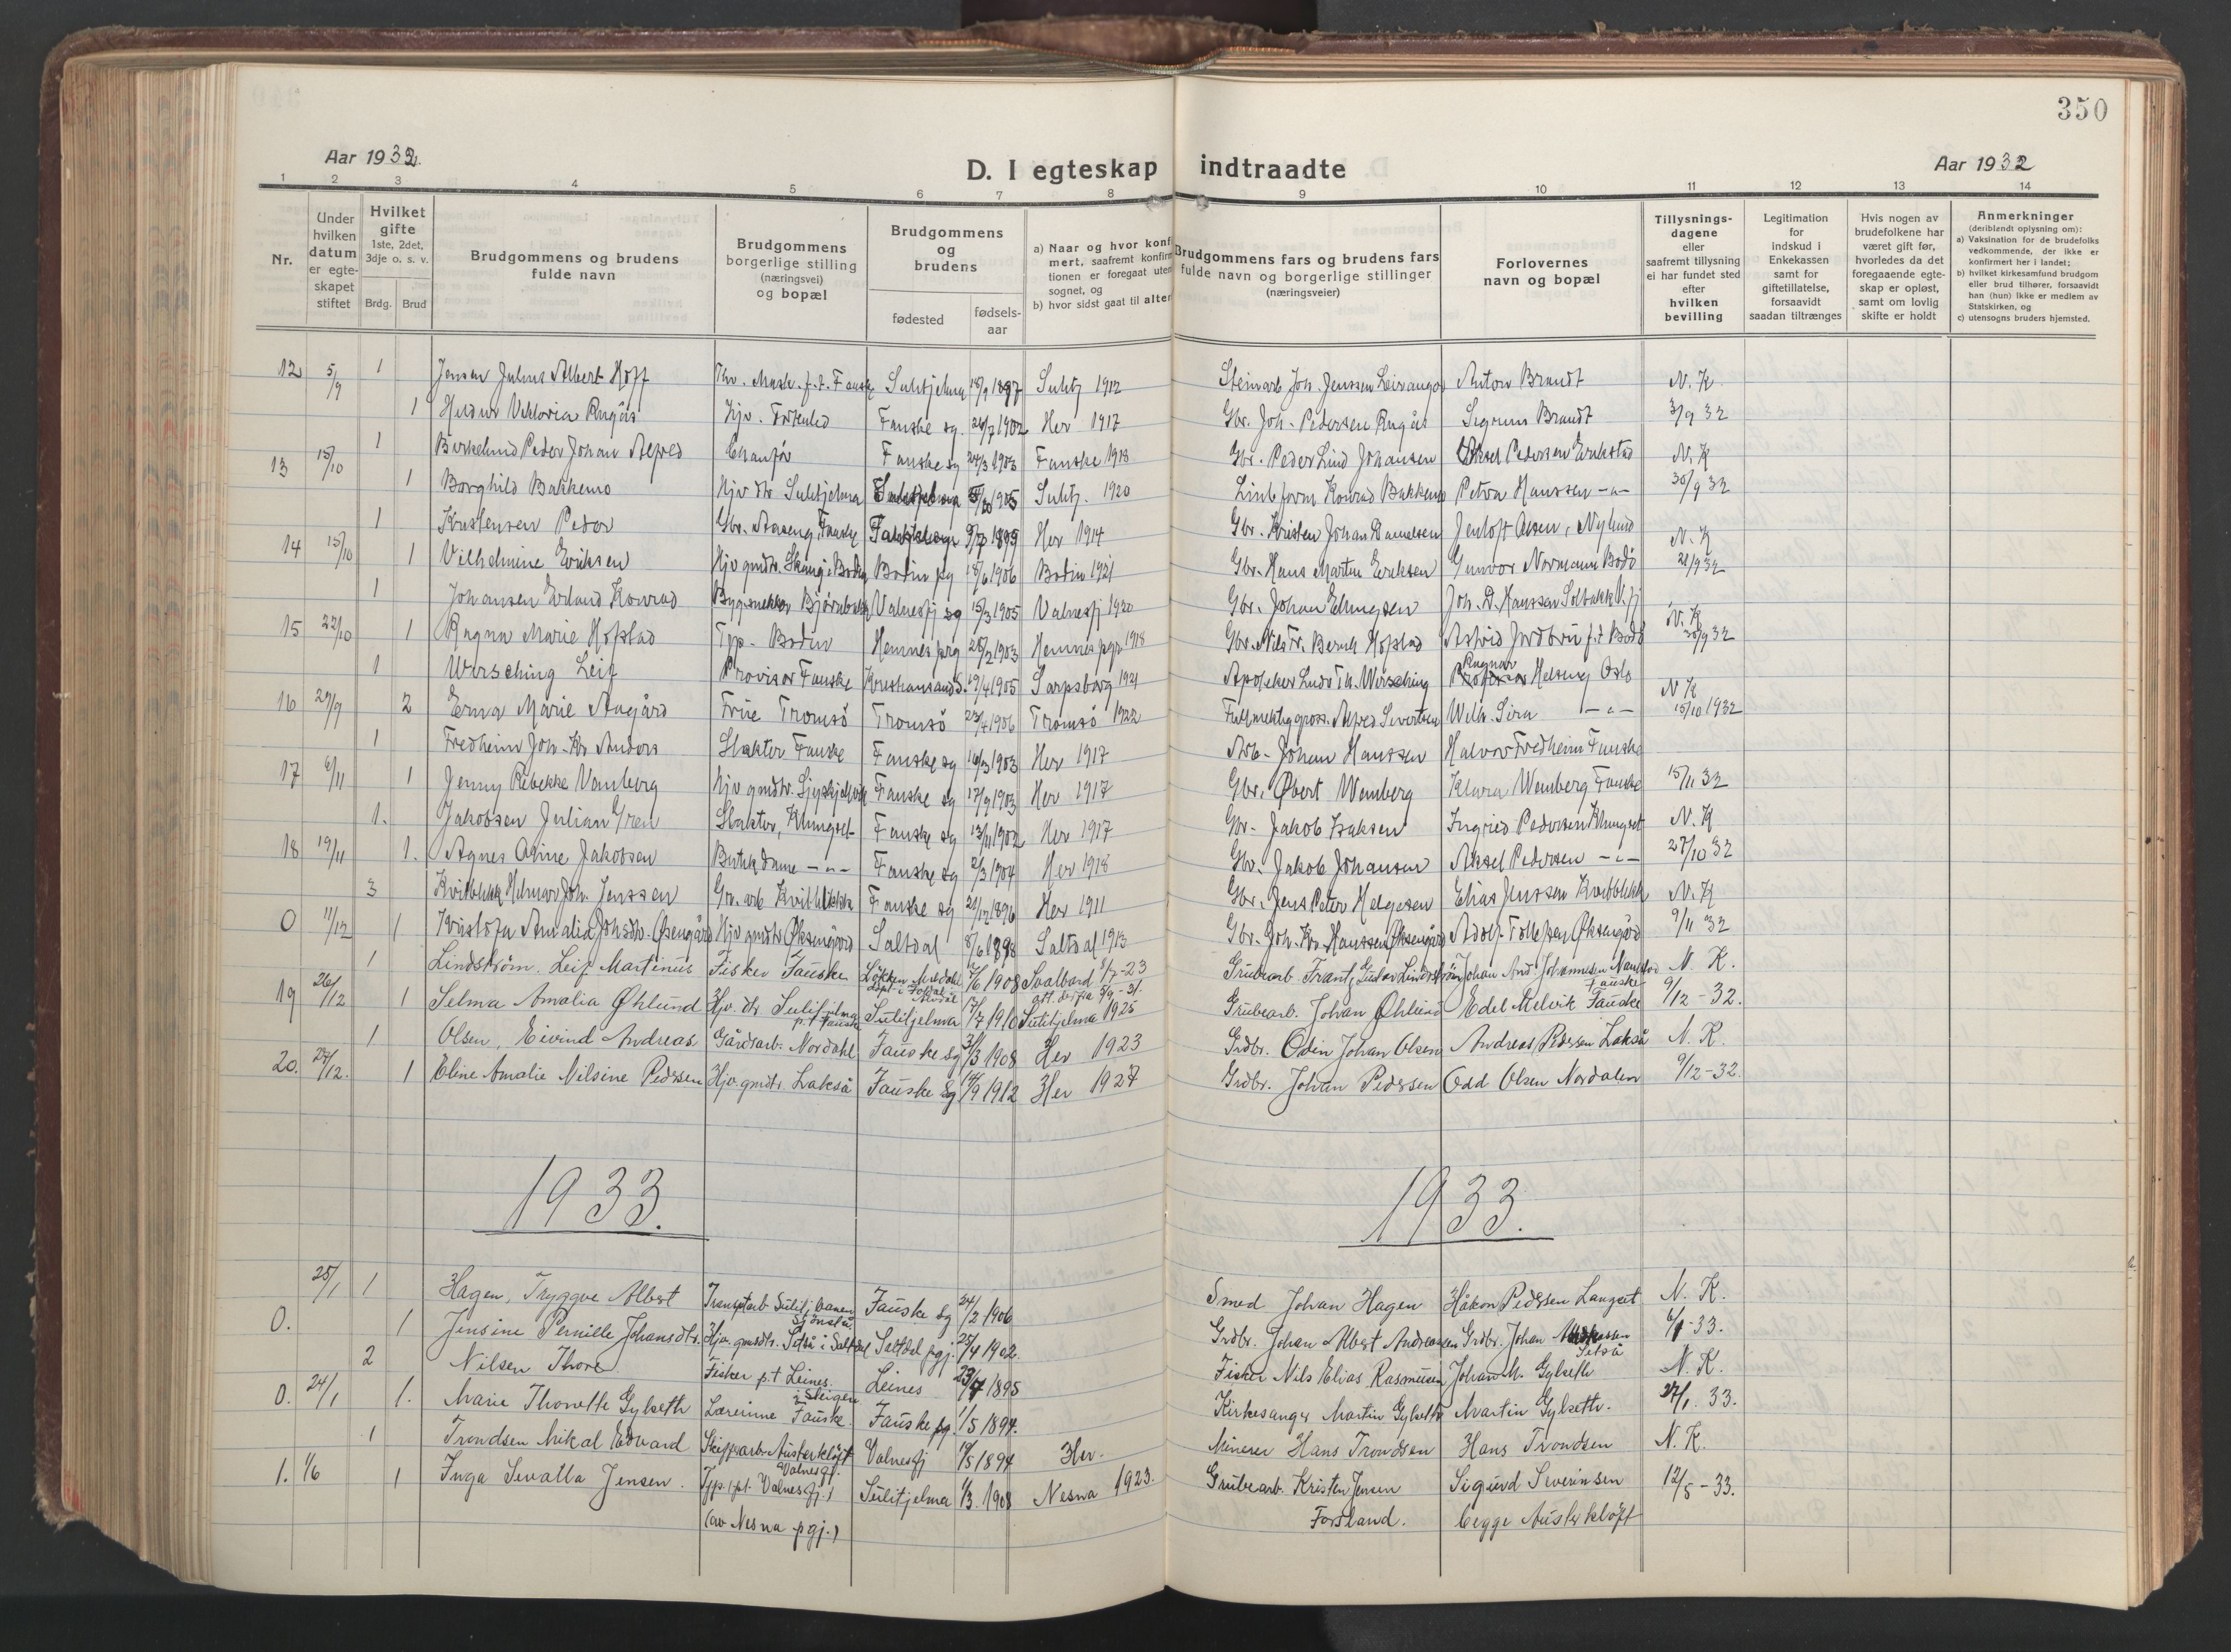 350
Aar 1932.
D. I egteskap indtraadte
Aar 1932
1 2 3 4 5 6 7 8 9 10 11 12 13 14
Nr.
Under hvilken datum er egteskapet stiftet
Hvilket gifte 1ste, 2det, 3dje o. s. v.
Brdg. Brud
Brudgommens og brudens fulde navn
Brudgommens borgerlige stilling (næringsvei) og bopæl
Brudgommens og brudens
fødested
fødsels-aar
a) Naar og hvor konf
mert, saafremt konfirm
tionen er foregaat uten
sognet, og
b) hvor sidst gaat til alter
Brudgommens fars og brudens fars fulde navn og borgerlige stillinger (næringsveier)
Forlovernes navn og bopæl
Tillysnings-dagene eller saafremt tillysning ei har fundet sted efter hvilken bevilling
Legitimation for indskud i Enkekassen samt for giftetillatelse, forsaavidt saadan tiltrænges
Hvis nogen av brudefolkene har været gift før, hvorledes da det foregaaende egteskap er opløst, samt om lovlig skifte er holdt
Anmerkninger
(deriblandt oplysning om):
a) Vaksination for de brudefolks vedkommende, der ikke er konfirmert her i landet;
b) hvilket kirkesamfund brudgom eller brud tilhører, forsaavidt han (hun) ikke er medlem av Statskirken, og
c) utensogns bruders hjemsted.
12 5/9 1 Jensen Julius Albert Hoff Sulitjelma 18/9 1897 Sulitj 1912 Steinarb Joh. Jenssen Leivangor Anton Brandt N. K
1 Viktoria Rugås Fauske sg. 24/7 1902 Her 1917 Gbr. Joh. Pedersen Rugås Sigrunn Brandt 3/9 32
13 15/10 1 Birkelund Peder Johan Alfred Chaufør Fauske sg 24/3 1903 Fauske 1918 Gbr. Peder Lind Johansen Aksel Pedersen Erikstad N. K
1 Borghild Bakkemo Hjv dtr Sulitjelma 1905 Sulitj. 1920 Konrad Bakkemo Petra Hanssen -"- 30/9 32
14 15/10 1 Kristensen Peder Gbr. Fauske 1899 Her 1914 Gbr. Kristen Johan Danielsen N. K
1 Vilhelmine Eriksen Hjv gmdtr. Bodin pg 1906 Bodin 1921 Gbr. Hans Martin Eriksen Gunvor Normann Bodø 21/9 32
15 22/10 1 Johansen Erland Konrad Valnesfj sg 15/3 1905 Valnesfj 1920 Gbr. Johan Ellingsen Joh. D. Hanssen Solbakk V.fj N. K
1 Ragna Marie Hopstad Tjp. Bodin Hemnes prg 28/2 1903 Hemnes pgr 1918 Gbr. Nils Fr. Bernh Hopstad Astrid Jordbru p.t Bodø 30/9 32
16 29/9 1 Wersching Leif Provisor Fauske Kristiansand S. 19/4 1905 Sarpsborg 1921 Apoteker Ludv Th. Wersching Ragnar Helseng Oslo N K
2 Erna Marie Aagård Frue Tromsø Tromsø 23/4 1906 Tromsø 1922 Fullmektig gross. Alfred Sivertsen Wilh. Sira -"- 15/10 1932
17 6/11 1 Fredheim Joh. Kr. Anders Slakter Fauske Fauske sg 16/3 1903 Her 1917 Arb. Johan Hanssen Halvor Fredheim Fauske
1 Jenny Rebekke Vemberg Hjv gmdtr. Fauske sg 17/9 1903 Her 1917 Gbr. Øbert Wemberg Klara Wemberg Fauske 15/11 32
18 19/11 1. Jakobsen Julian Yren Slakter, Klungset Fauske sg 13/11 1902 Her 1917 Gbr. Jakob Isaksen Ingrid Pedersen Klungset N. K
1. Agnes Oline Jakobsen Butikdame -"- Fauske sg 2/3 1904 Her 1918 Gbr. Jakob Johansen Aksel Pedersen -"- 27/10 32
0 11/12 3 Kvitblikk Helmar Joh. Jenssen Gr. arb Kvitblikk Fauske sg 21/12 1896 Her 1911 Gbr. Jens Peter Helgesen Elias Jenssen Kvitblikk N. K
1 Kristofa Amalia Johsdtr. Øksengård Hjv gmdtr Øksengård Saltdal 8/6 1898 Saltdal 1913 Gbr. Joh. Kr. Hanssen Øksengård Adolf Tollefsen Øksengård 9/11 32
19 26/12 1 Lindstrøm. Leif Martinus Fisker Fauske Løkken Meldal 1908 Svalbard 8/7-23 Grubearb. Frant, Gustav Lindstrøm Johan And. Johannesen Fauske N. K.
1 Selma Amalia Øhlund Hjv. dtr Sulitjelma p.t Fauske Sulitjelma 17/7 1910 Sulitjelma 1925 Grubearb. Johan Øhlund Edel Melvik Fauske 9/12-32.
20. 27/12. 1 Olsen, Eivind Andreas Gårdsarb. Nordahl Fauske sg 31/3 1908 Her 1923 Grdbr. Odin Johan Olsen Andreas Pedersen Lakså N. K.
1 Eline Amalie Nilsine Pedersen Hjv. gmdtr. Lakså Fauske sg 1912 Her 1927 Grdbr. Johan Pedersen Odd Olsen Nordalen 9/12-32.
1933. 1933.
0. 25/1 1 Hagen, Tryggve Albert Transptarb Sulitj.banen Sjønstå Fauske sg 24/2 1906 Smed Johan Hagen Håkon Pedersen Langset N. K.
1 Jensine Pernille Johansdtr. Hjv. gmdtr. Setså i Saltdal Saltdal pgj. 25/4 1902. Grdbr. Johan Albert Andreassen Grdbr. Johan Andreassen Setså 6/1-33.
0. 24/1 2 Nilsen Thore Fisker p.t Leines i Steigen Leines 23/7 1895 Fisker Nils Elias Rasmussen Johan M. Gylseth N. K.
1. Marie Thonette Gylseth Lærerinne Fauske. Fauske pg. 1/5 1894. Kirkesanger Martin Gylseth Martin Gylseth. 27/1. 33.
1. 1/6 1 Trondsen Mikal Edvard Skipparb. Austerkløft Valnesfj. Valnesfj 1894 Her. Minerer Hans Trondsen Hans Trondsen N. K.
1 Inga Sevalla Jensen. Tjp. (p.t. Valnesfj.) Sulitjelma 1/3. 1908 Nesna 1923. Grubearb. Kristen Jensen Sigurd Severinsen 12/5-33.
(av Nesna pgj.) Forsland. begge Austerkløft